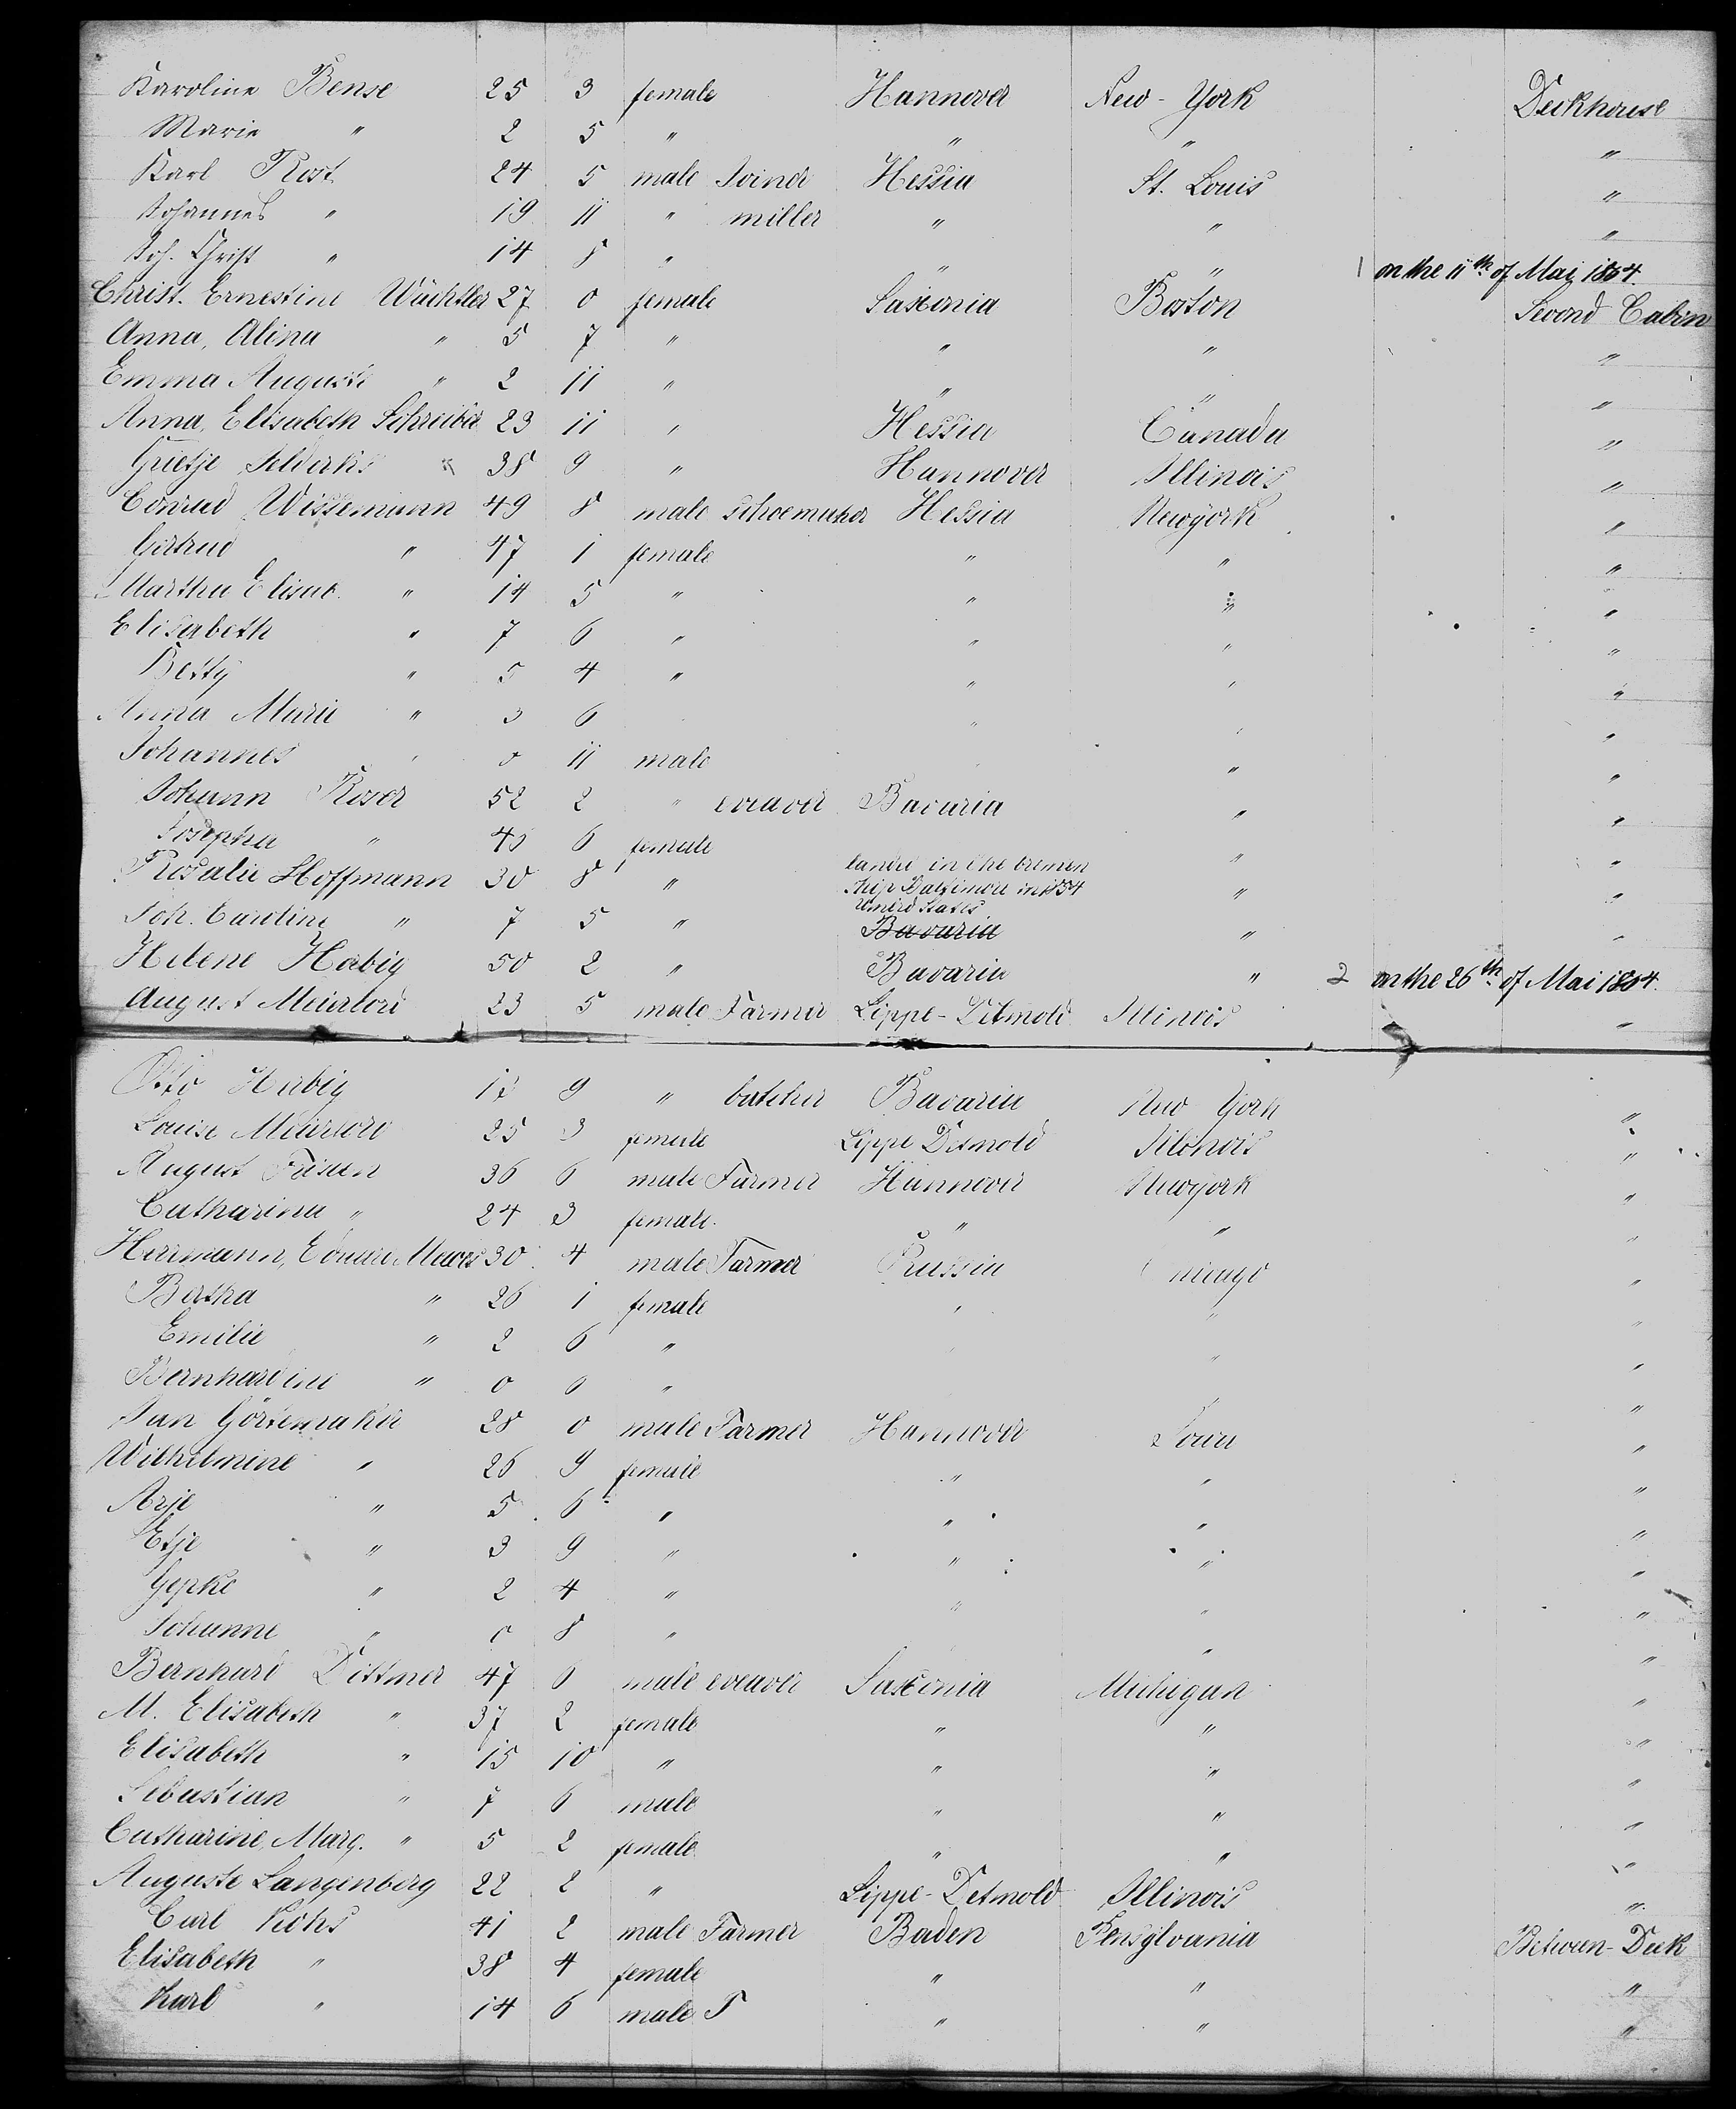 Karoline Bense 25 3 female Hannover New-York Deckhouse
Marie " 2 5 " " " "
Karl Rost 24 5 male Joiner Hessia St. Louis "
Johannes " 19 11 " miller " " "
Joh. Christ " 14 8 " " " 1 on the 11th of Mai 1854.
Christ. Ernestine Wächtler 27 0 female Saxonia Boston Second Cabin
Anna, Alina " 5 7 " " " "
Emma Auguste " 2 11 " " " "
Anna, Elisabeth Schreiber 23 11 " Hessia Canada "
Grietje Selderks 38 9 " Hannover Illinois "
Conrad Wissemann 49 8 male schoemaker Hessia Newyork "
Gertrud " 47 1 female " " "
Martha Elisab. " 14 5 " " " "
Elisabeth " 7 6 " " " "
Betty " 5 4 " " " "
Anna Marie " 3 6 " " "
Johannes " 0 11 male " "
Johann Roser 52 2 " weaver Bavaria " "
Josepha " 45 6 female " "
landed in the bremen
Rosalie Hoffmann 30 8 " ship Baltimore in 1854 " "
United States
Joh. Caroline " 7 5 " Bavaria " "
Helene Habig 50 2 " Bavaria " 2 on the 26th of Mai 1854.
August Meierlord 23 5 male Farmer Lippe-Detmold Illinois "
Otto Habig 17 9 " butcher Bavaria New York "
Louise Meierlord 25 3 female Lippe Detmold Illonois "
August Frisen 36 6 male Farmer Hannover Newyork "
Catharina " 24 3 female " " "
Herrmann, Eduard 30 4 male Farmer Prussia Chicago "
Bertha " 26 1 female " " "
Emilie " 2 6 " " "
Bernhardine " 0 " " "
Jan Görtemaker 28 0 male Farmer Hannover Iowa "
Wilhelmine " 26 9 female " " "
Arje " 5 6 " " " "
Etje " 3 9 " " " "
Gepke " 2 4 " " " "
Johanne " 0 8 " " "
Bernhard Dittmer 47 6 male weaver Saxonia Michigan "
M. Elisabeth " 37 2 female " " "
Elisabeth " 15 10 " " " "
Sebastian " 7 6 male " " "
Catharine, Marg. " 5 2 female " " "
Auguste Langenberg 22 2 " Lippe-Detmold Illinois "
Carl 41 2 male Farmer Baden Pensylvania Between-Deck
Elisabeth " 38 4 female " " "
Karl " 14 6 male F " " "